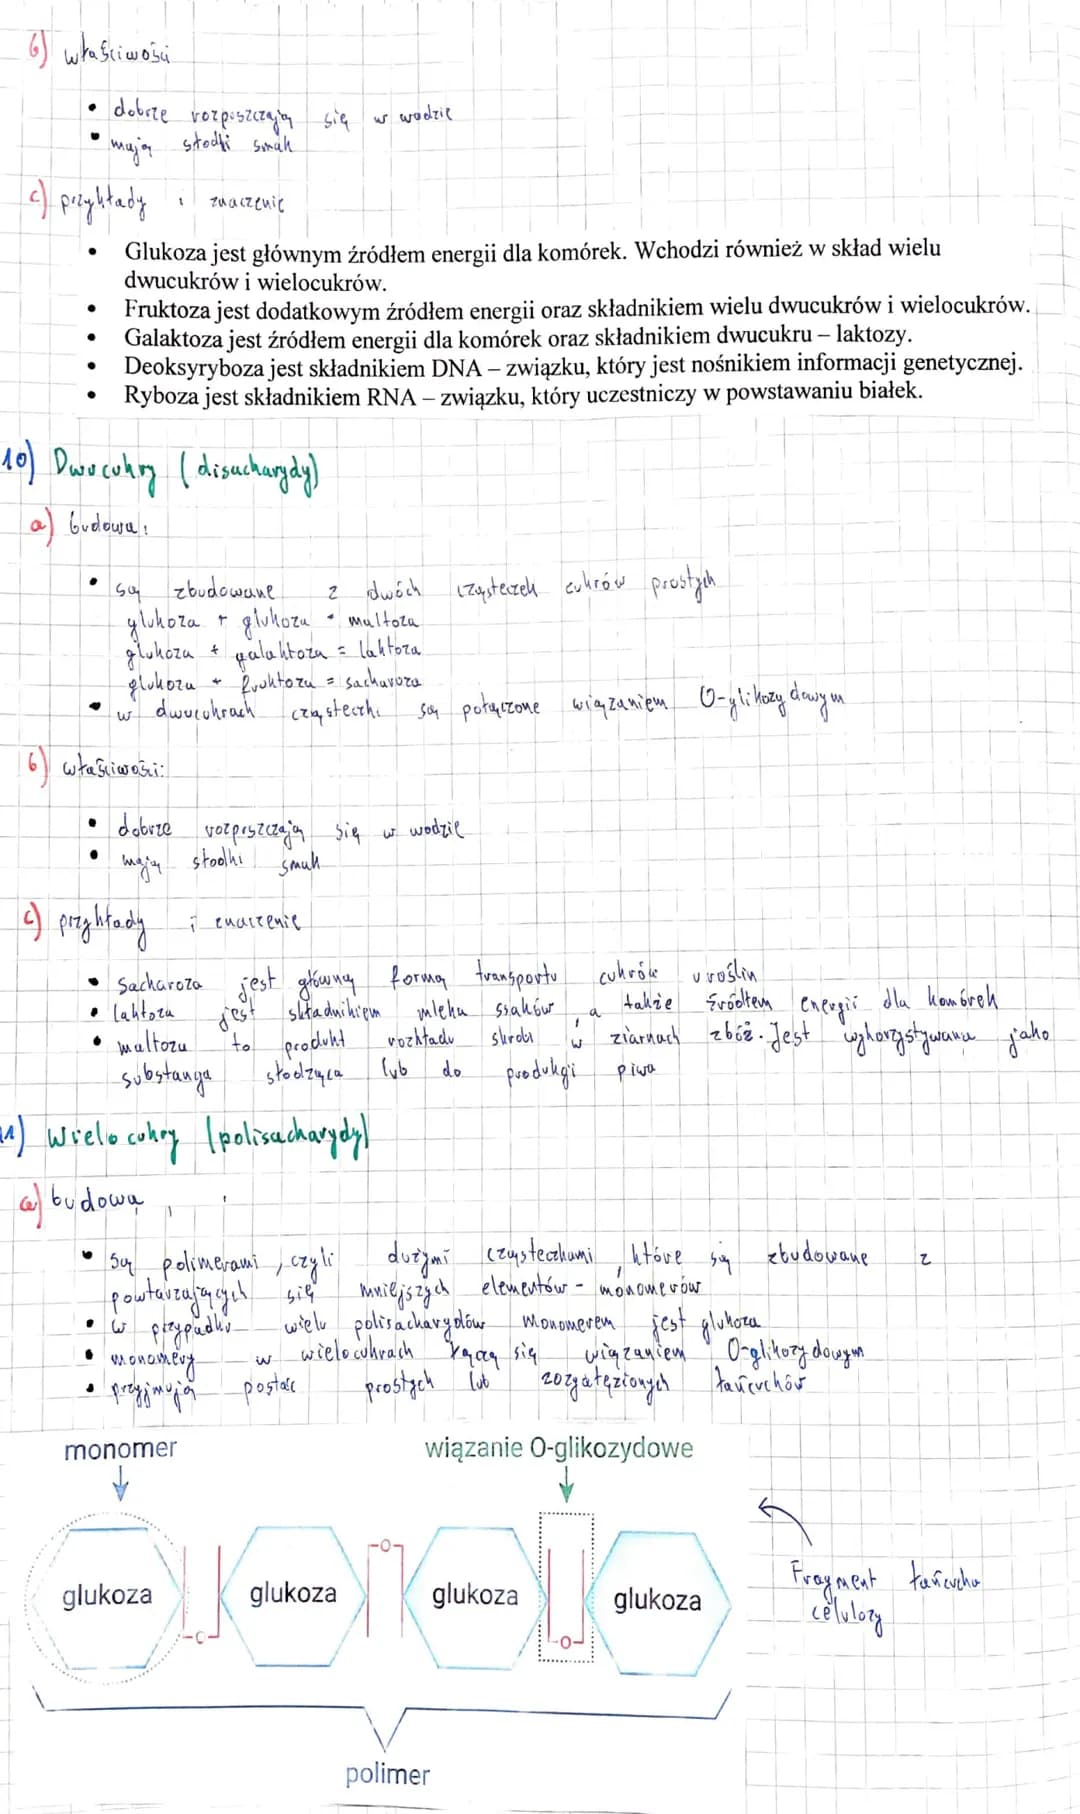 b) właściwości
• dobrze rozpuszczają się w wodzie
• mają słodki smak
c) przykłady i znaczenie
• Glukoza jest głównym źródłem energii dla komórek. Wchodzi również w skład wielu
dwucukrów i wielocukrów.
• Fruktoza jest dodatkowym źródłem energii oraz składnikiem wielu dwucukrów i wielocukrów.
• Galaktoza jest źródłem energii dla komórek oraz składnikiem dwucukru – laktozy.
• Deoksyryboza jest składnikiem DNA – związku, który jest nośnikiem informacji genetycznej.
• Ryboza jest składnikiem RNA – związku, który uczestniczy w powstawaniu białek.
10) Dwucukry (disacharydy)
a) budowa:
• są zbudowane z dwóch cząsteczek cukrów prostych
glukoza + glukoza = maltoza
glukoza + galaktoza = laktoza
glukoza + fruktoza = sacharoza
• w dwucukrach cząsteczki są połączone wiązaniem O-glikozydowym
b) właściwości:
• dobrze rozpuszczają się w wodzie
• mają słodki smak
c) przykłady i znaczenie
• Sacharoza jest główną formą transportu cukrów u roślin
• laktoza jest składnikiem mleka ssaków, a także źródłem energii dla komórek
• maltoza to produkt rozkładu skrobi w ziarnach zbóż. Jest wykorzystywana jako
substancja słodząca lub do produkcji piwa
11) Wielocukry (polisacharydy)
a) budowa
• są polimerami, czyli dużymi cząsteczkami, które są zbudowane z
powtarzających się mniejszych elementów - monomerów
• w przypadku wielu polisacharydów monomerem jest glukoza
• monomery w wielocukrach łączą się wiązaniem O-glikozydowym
• przyjmują postać prostych lub rozgałęzionych łańcuchów
monomer wiązanie O-glikozydowe
Fragment łańcucha
celulozy
glukoza glukoza glukoza glukoza
-O- -O- -O-
polimer